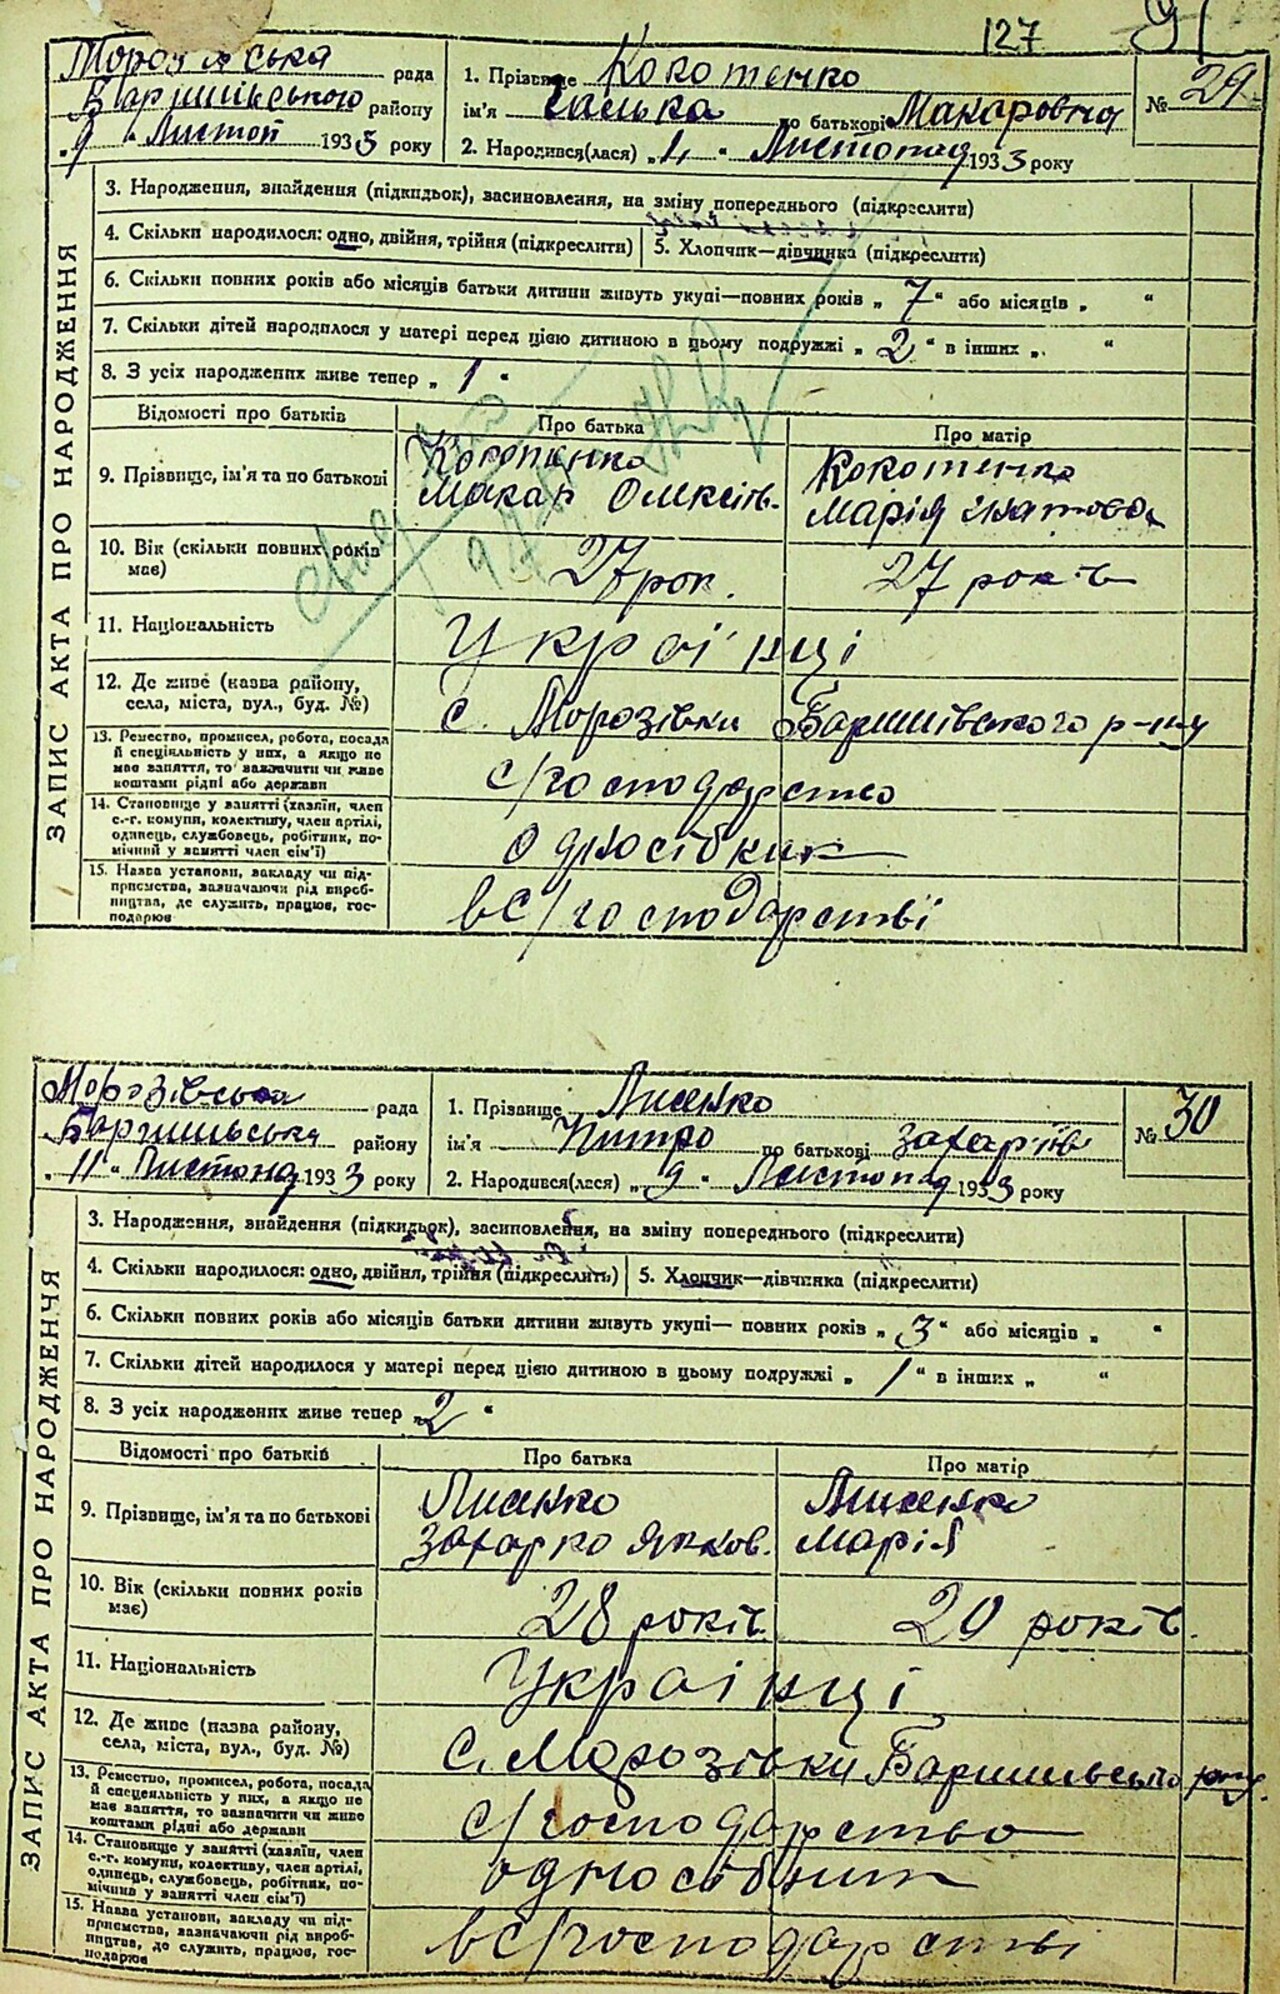 127
рада
1. Прізвище Кокотенко
№ 29
району
ім'я Галька по батькові Макаровна
„9" Листоп 1933 року
2. Народився(лася) „4" Листопад 1933 року
ЗАПИС АКТА ПРО НАРОДЖЕННЯ
3. Народження, знайдення (підкидьок), засиновлення, на зміну попереднього (підкреслити)
4. Скільки народилося: одно, двійня, трійня (підкреслити) 5. Хлопчик—дівчинка (підкреслити)
6. Скільки повних років або місяців батьки дитини живуть укупі—повних років „ 7 " або місяців „ "
7. Скільки дітей народилося у матері перед цією дитиною в цьому подружжі „ 2 " в інших „ "
8. З усіх народжених живе тепер „ 1 "
Відомості про батьків Про батька Про матір
9. Прізвище, ім'я та по батькові
Кокотенко Кокотенко
Макар Олексів. Марія Ігнатовна
10. Вік (скільки повних років має) 27 рок. 27 років
11. Національність Українці
12. Де живе (назва району, села, міста, вул., буд. №) с. Морозівки Баришівського р-ну
13. Ремество, промисел, робота, посада
й спеціяльність у них, а якщо не
має заняття, то зазначити чи живе
коштами рідні або держави
с/господарство
14. Становище у занятті (хазяїн, член
с.-г. комуни, колективу, член артілі,
одинець, службовець, робітник, по-
мічний у занятті член сім'ї)
односібник
15. Назва установи, закладу чи під-
приємства, зазначаючи рід вироб-
ництва, де служить, працює, гос-
подарює
в с/господарстві
Морозівська рада
1. Прізвище Лисенко
№ 30
району
ім'я Питро по батькові Захарків
„11" Листопад 1933 року
2. Народився(лася) „9" Листопад 1933 року
ЗАПИС АКТА ПРО НАРОДЖЕННЯ
3. Народження, знайдення (підкидьок), засиновлення, на зміну попереднього (підкреслити)
4. Скільки народилося: одно, двійня, трійня (підкреслить) 5. Хлопчик—дівчинка (підкреслити)
6. Скільки повних років або місяців батьки дитини живуть укупі— повних років „ 3 " або місяців „ "
7. Скільки дітей народилося у матері перед цією дитиною в цьому подружжі „ 1 " в інших „ "
8. З усіх народжених живе тепер „ 2 "
Відомості про батьків Про батька Про матір
9. Прізвище, ім'я та по батькові
Лисенко Лисенко
Захарко Яков. Марія
10. Вік (скільки повних років має) 28 років. 20 років.
11. Національність Українці
12. Де живе (назва району, села, міста, вул., буд. №) с. Морозівки
13. Ремество, промисел, робота, посада
й спецеяльність у них, а якщо не
має заняття, то зазначити чи живе
коштами рідні або держави
с/господарство
14. Становище у занятті (хазяїн, член
с.-г. комуни, колективу, член артілі,
одинець, службовець, робітник, по-
мічний у занятті член сім'ї)
односібник
15. Назва установи, закладу чи під-
приємства, зазначаючи рід вироб-
ництва, де служить, працює, гос-
подарює
в с/господарстві